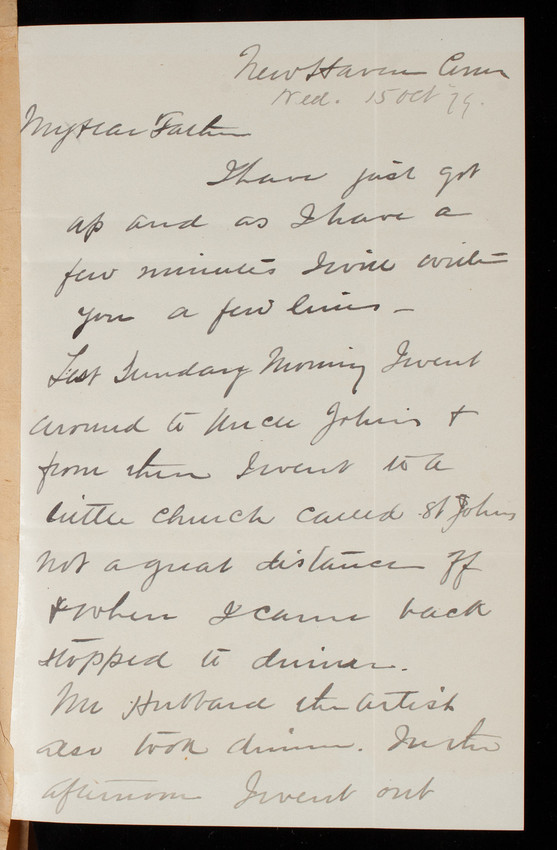 New Haven Conn
Wed. 15 Oct 79.
My Dear Father
I have just got
up and as I have a
few minutes I will write
you a few lines –
Last Sunday Morning I went
around to Uncle John's +
from then I went to a
little church called St Johns
not a great distance off
+ when I came back
stopped to dinner.
Mr Hubbard the artist
also took dinner. In the
afternoon I went out